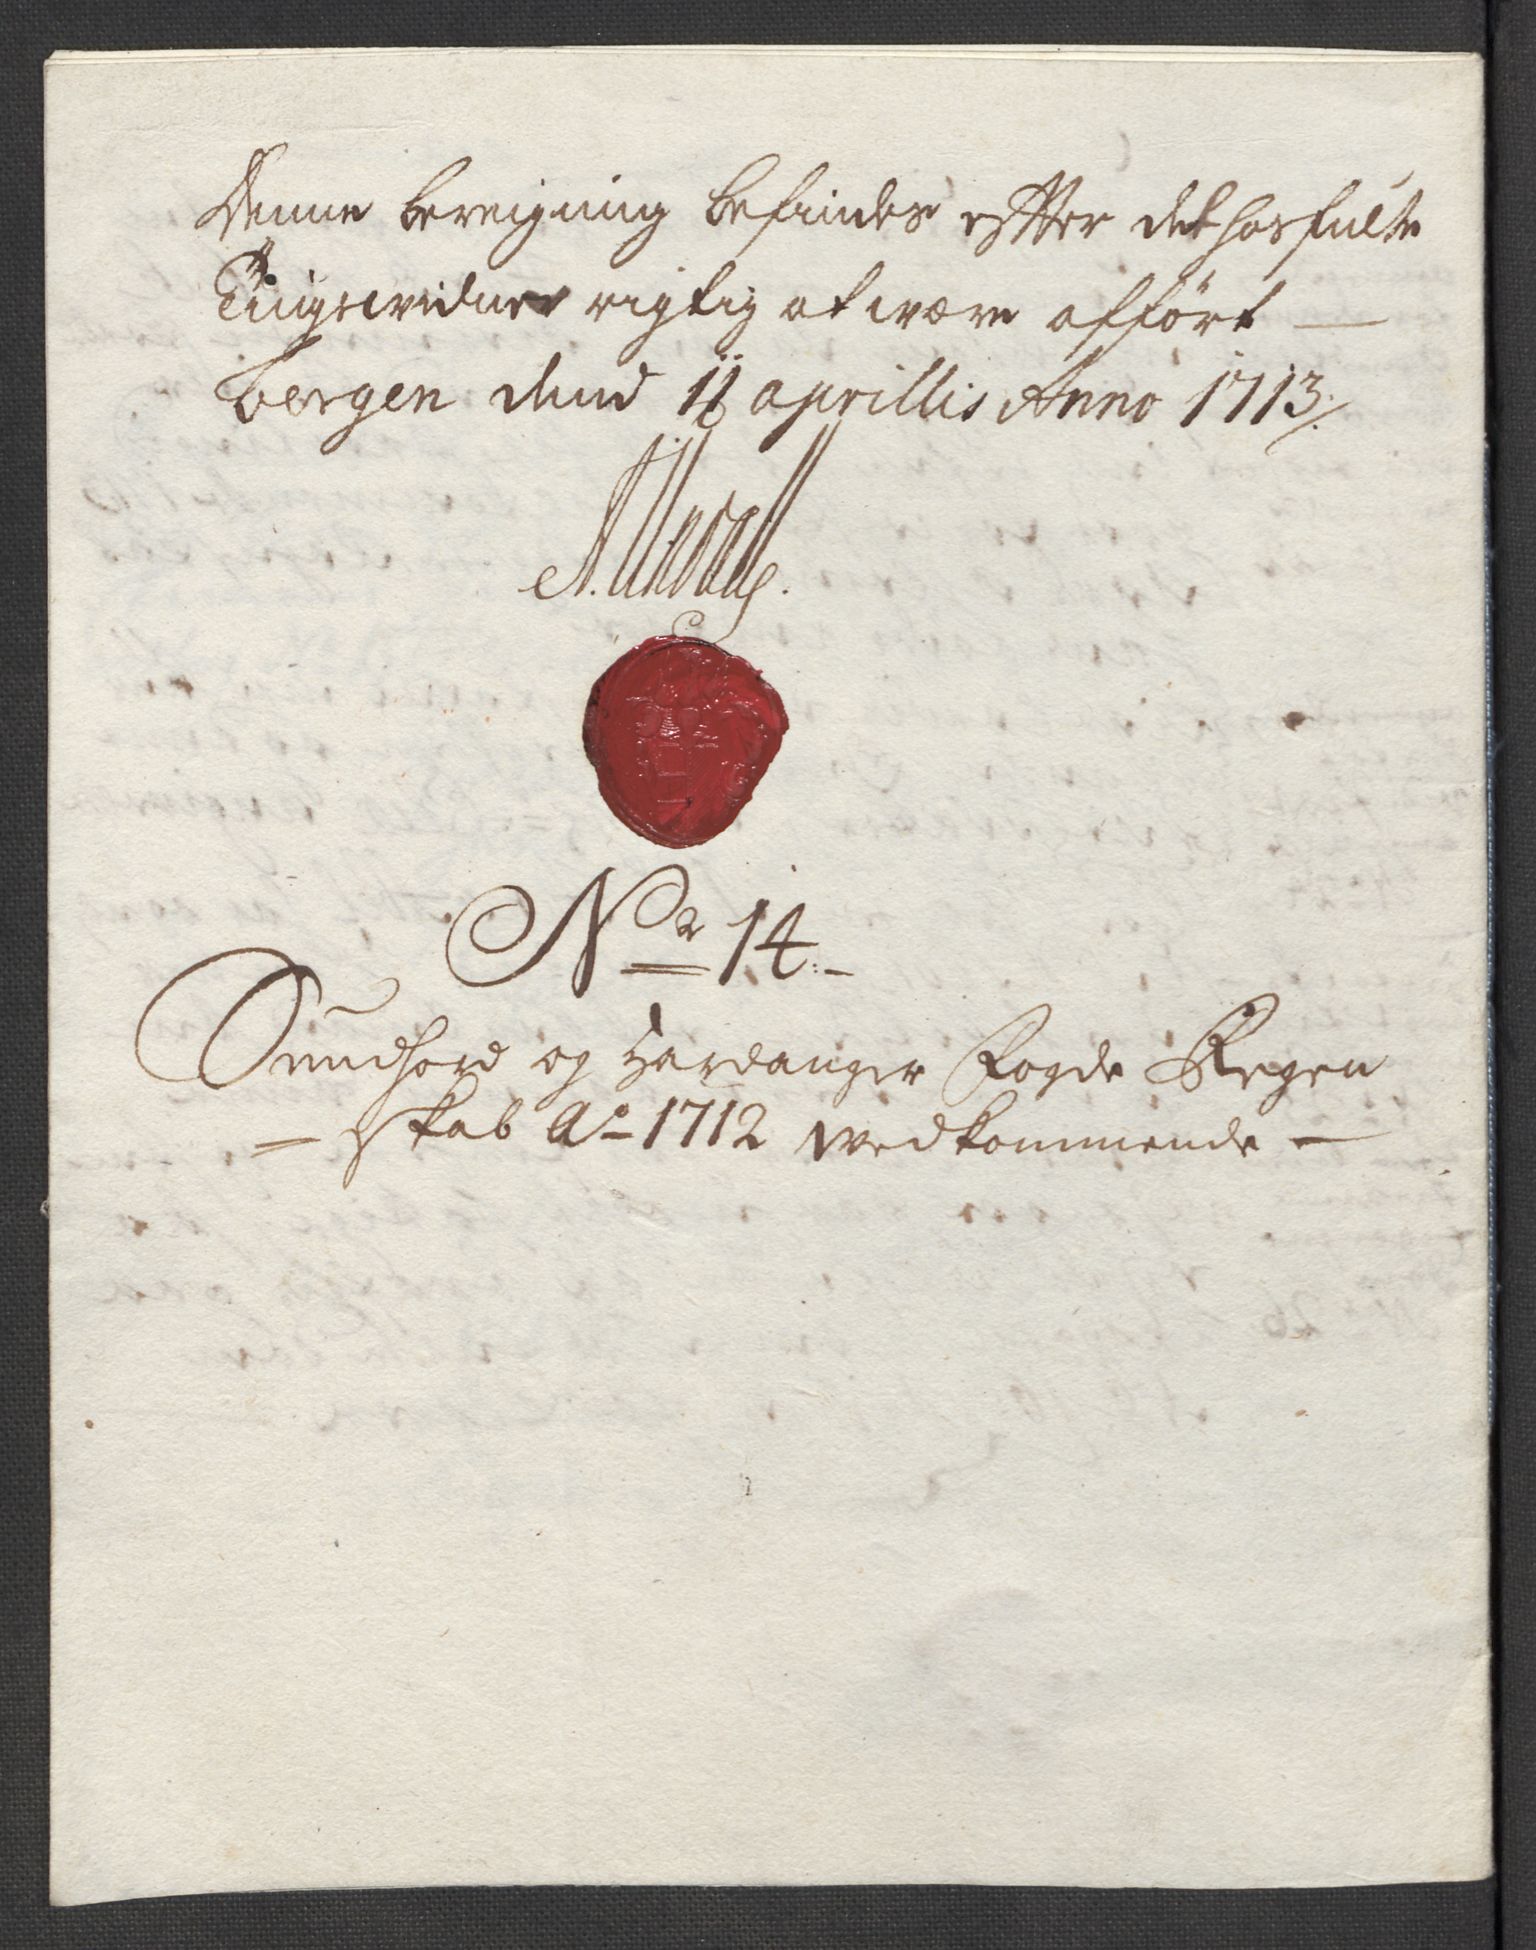 Denne bereigning befindes efter det hosfulte
Tingswidne rigtig at være afført —
Bergen dend 11 aprillis Anno 1713 /.
No 14 :-
Sundhord og Hardanger Fogde Regen
= skab Ao 1712 wedkommende —